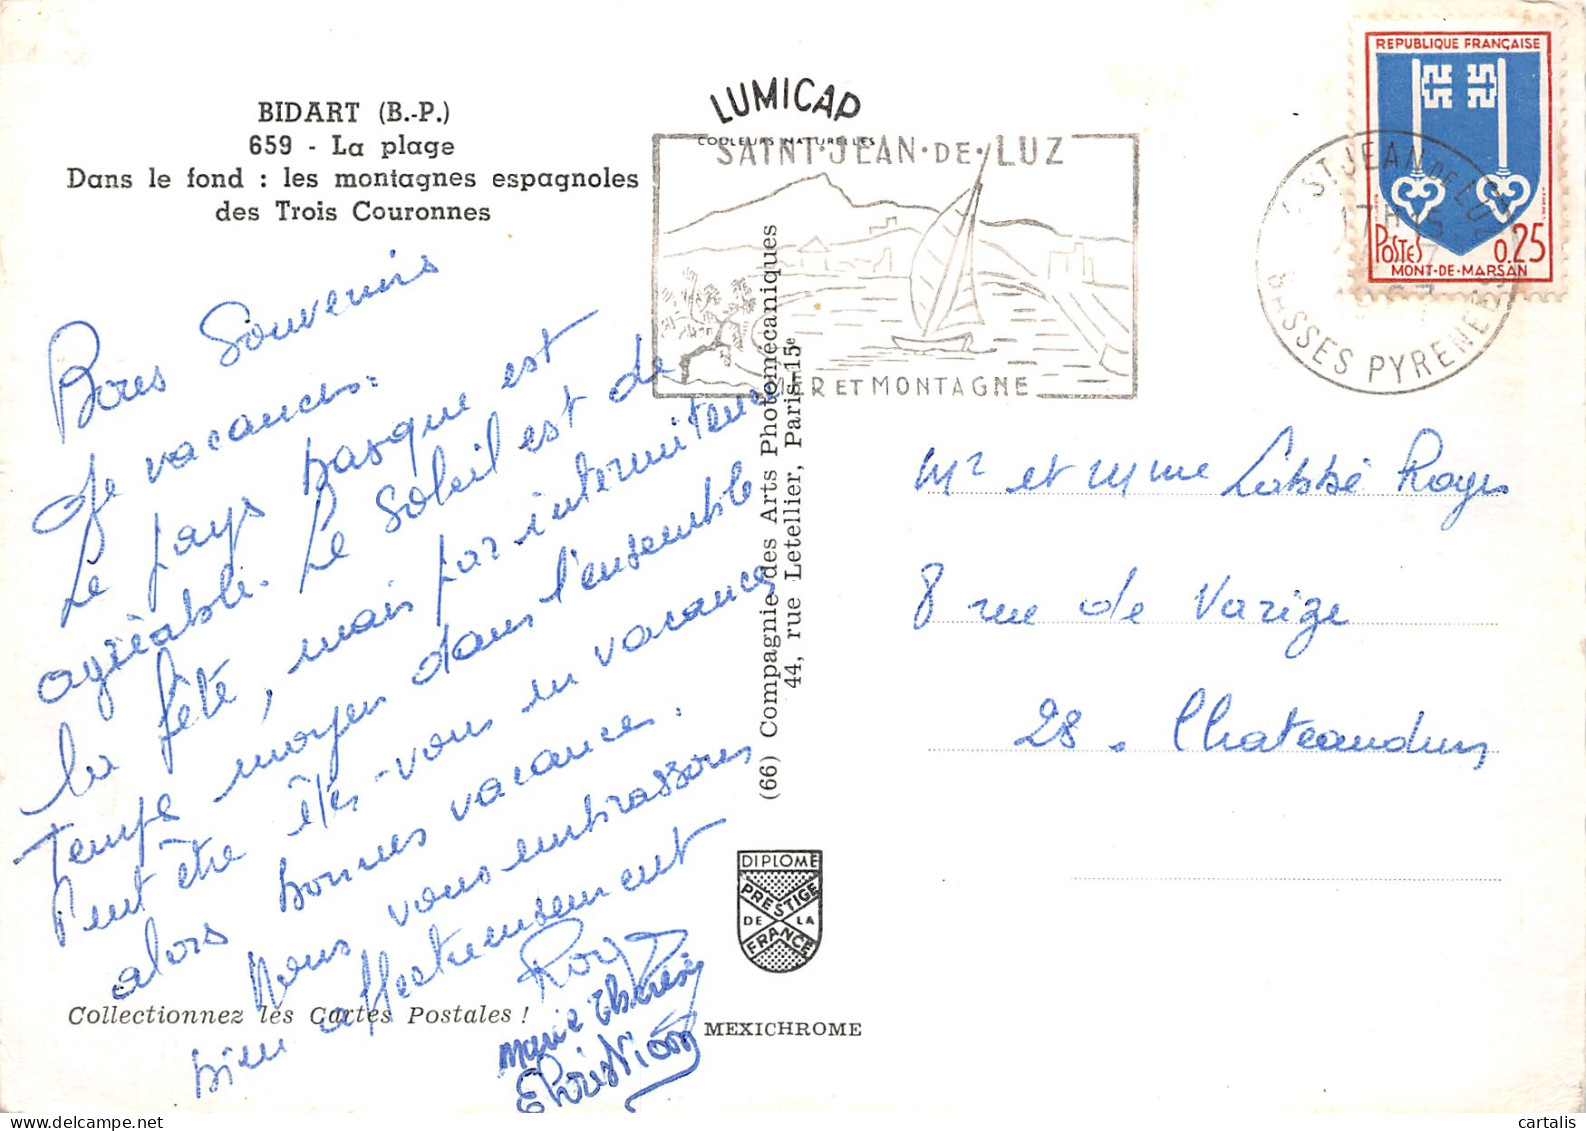 BIDART (B.-P.)
659 - La plage
Dans le fond : les montagnes espagnoles
des Trois Couronnes
Bons Souvenirs
de vacances.
Le pays basque est
agréable. Le soleil est de
la fête, mais par intermitence
Temps moyen dans l'ensemble
Peut être êtes-vous en vacances
alors bonnes vacances.
Nous vous embrassons
bien affectueusement
Marie Thérèse
Christian
Collectionnez les Cartes Postales !
LUMICAP
COULEURS NATURELLES
SAINT·JEAN·DE·LUZ
MER ET MONTAGNE
(66) Compagnie des Arts Photomécaniques
44, rue Letellier, Paris-15e
DIPLOME
PRESTIGE
DE LA
FRANCE
MEXICHROME
REPUBLIQUE FRANÇAISE
POSTES
0.25
MONT-DE-MARSAN
ST JEAN DE LUZ
17H15
BASSES PYRENEES
Mr et Mme Labbé Roger
8 rue de Varize
28. Chateaudun
cartalis